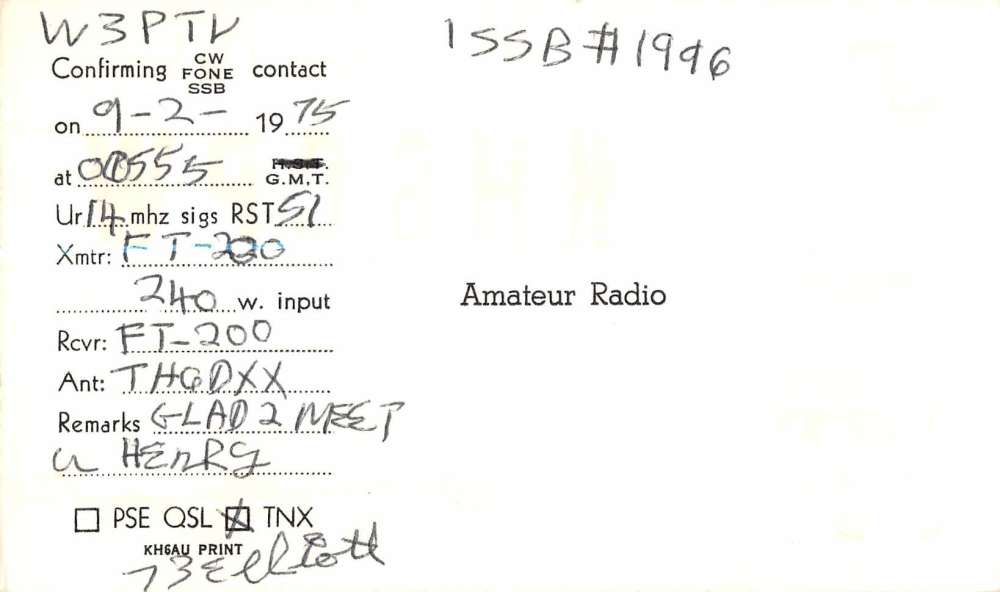 W3PTV
1SSB#1996
Confirming CW FONE SSB contact
on 9-2- 1975
at 00555 G.M.T.
Ur 14 mhz sigs RST 51
Xmtr: FT-200
240 w. input
Amateur Radio
Rcvr: FT-200
Ant: TH6DXX
Remarks GLAD 2 MEET
u HEnRy
PSE QSL TNX
KH6AU PRINT
73 Elliott